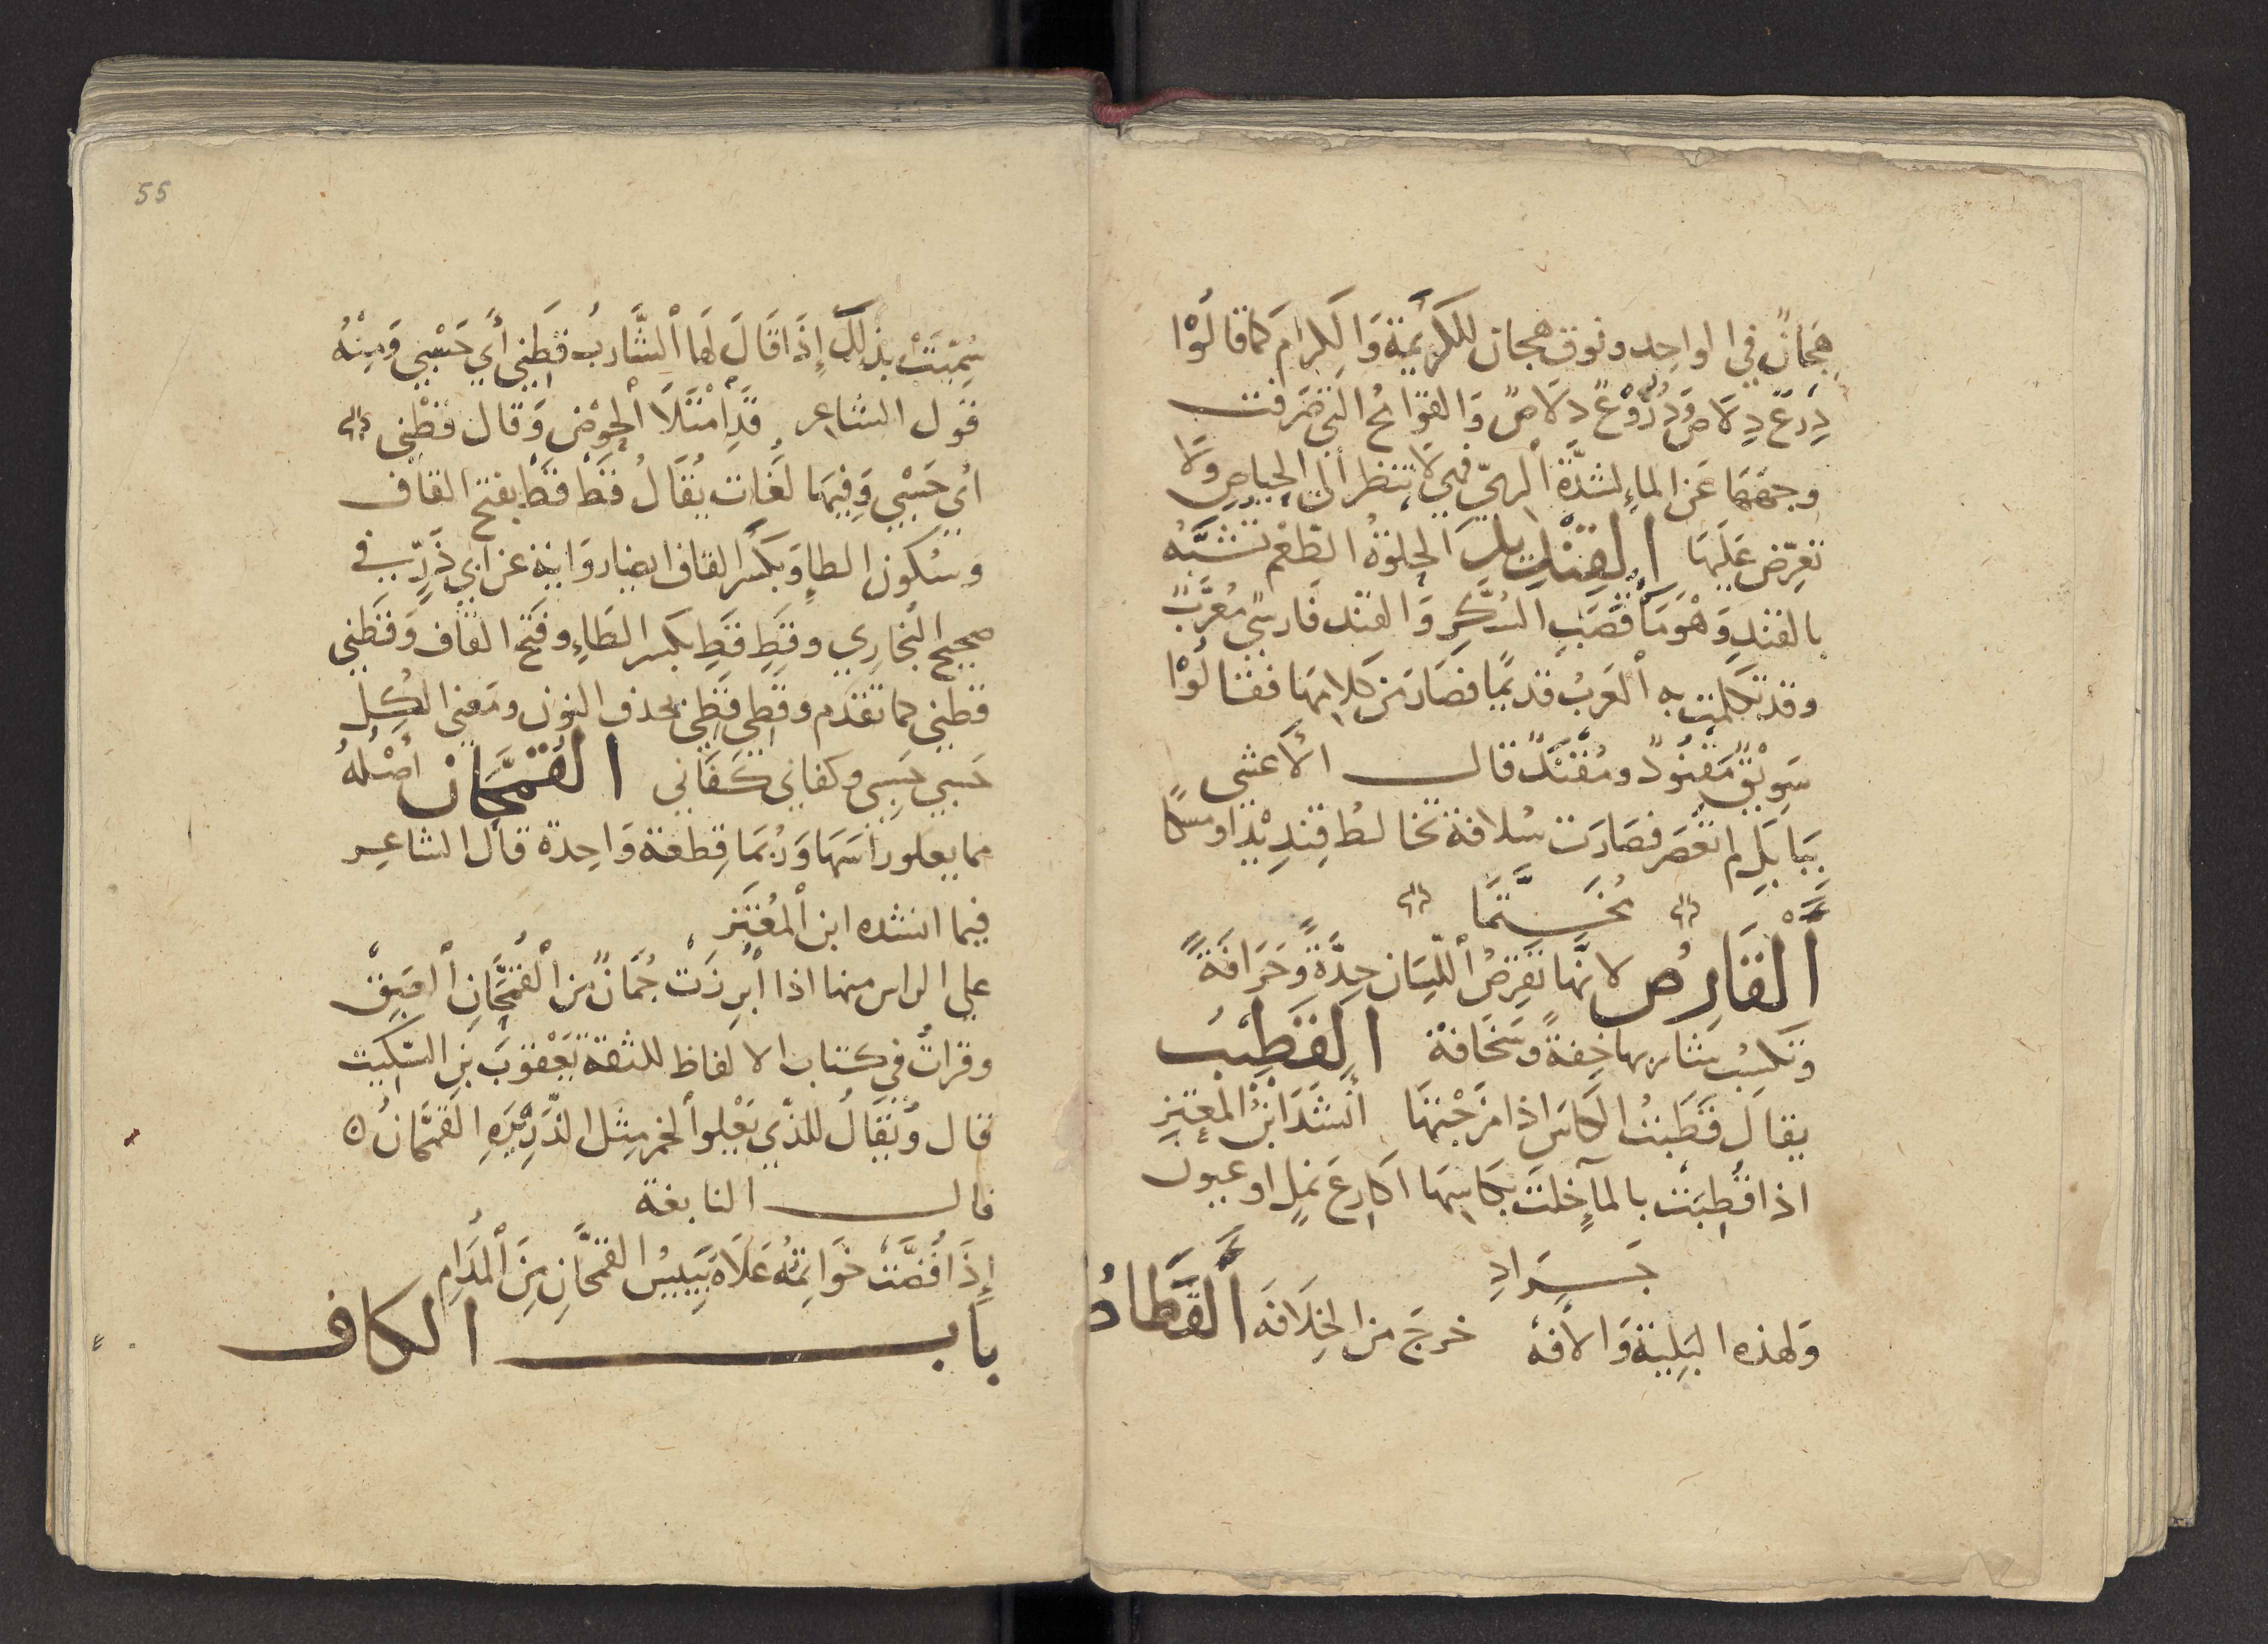 هِجَانٌ في الواحِد ونوق هجان للكَرِيمَة وَالكِرام كما قالُوْا
دِرْعٌ دِلَاصٌ وَدُرُوْعٌ دلَاصٌ وَالقوَامحُ التي صَرفت
وجهَهَا عَن الماء لشدَّة ألريّ فهي لَا تنظر ألى الحياض ولا
تعرّض عَلَيهَا القِنْديد الحلوة الطّعْم تشبّه
بالقندِ وَهْوَ مَا قصَبِ السُكّرِ وَالقند فارسيّ مُعرَّبٌ
وقد تكلمت به ألعَربُ قديمًا فصَارَ من كلامها فقالُوْا
سَوِيْقٌ مَقنُودٌ ومُقنَّدٌ قال الأعشى
بِبَابِلِ لم تعْصَر فصَارَت سُلافة تخالطُ قِنْدِيْدًا ومسكًا
مُخَتَّمَا
ألقَارِصُ لانّها تقرصُ أللّسَان حِدَّةً وَحَرَافَةً
وتكسِبُ شاربها خِفةً وسَخَافةً القَطِيْبُ
يقال قَطَبْتُ الكاسَ اذا مَزَجْتهَا أنشَدَ ابْنُ المعتزِ
اذا قُطِبَتْ بالماءِ خلتَ بكاسِهَا أكارعَ نملٍ او عيون
جَرَادِ
وَلهذه البَلِيّة وَالأفة خرجَ من الخِلَافَه ألقَطَاطُ
55
سُمِّيَتْ بذلِكَ إِذَا قَالَ لهَا ألشَّاربُ قَطْنِي أي حَسْبي وَمِنْهُ
قول الشاعر قَدِ أمْتَلَأ ألحوْضُ وَقال قطْني
أي حَسْبي وَفيهَا لغات يُقَالُ قَطْ قَطْ بفتح القاف
وسُكون الطاءِ وَبكسر القاف ايضا روَاية عن أبي ذَرّ في
صحيح البُخاري وقَطِ قَطِ بكسر الطَاءِ وفتح القاف وَقَطْني
قطني كما تقدّم وقَطِي قَطِي بحذف النون ومَعْنى الكُل
حَسبي حَسْبي وكفاني كفَاني القُمَّحَانُ أصْلهُ
مما يعلو رأسَهَا وَربُمَا قِطعة وَاحِدة قال الشاعر
فيما انشده ابن ألمُعْتز
على الراس منها اذا أُبْرِزَتْ جُمَانٌ من ألقُمَّحَانِ ألعَتِيقْ
وقرأتُ في كتاب الالفاظ للثقة يَعْقوبَ بن السّكيت
قال وَيُقَالُ للذّي يَعْلوا ألخمر مِثل الذَّرِيْرَةِ القُمَّحَانُ ه
قال النابغة
إِذَا فُضَّتْ خَوَاتمُه عَلَاهُ يَبِيْسُ القمّحَانِ مِنَ ألمُدَامِ
باب الكاف